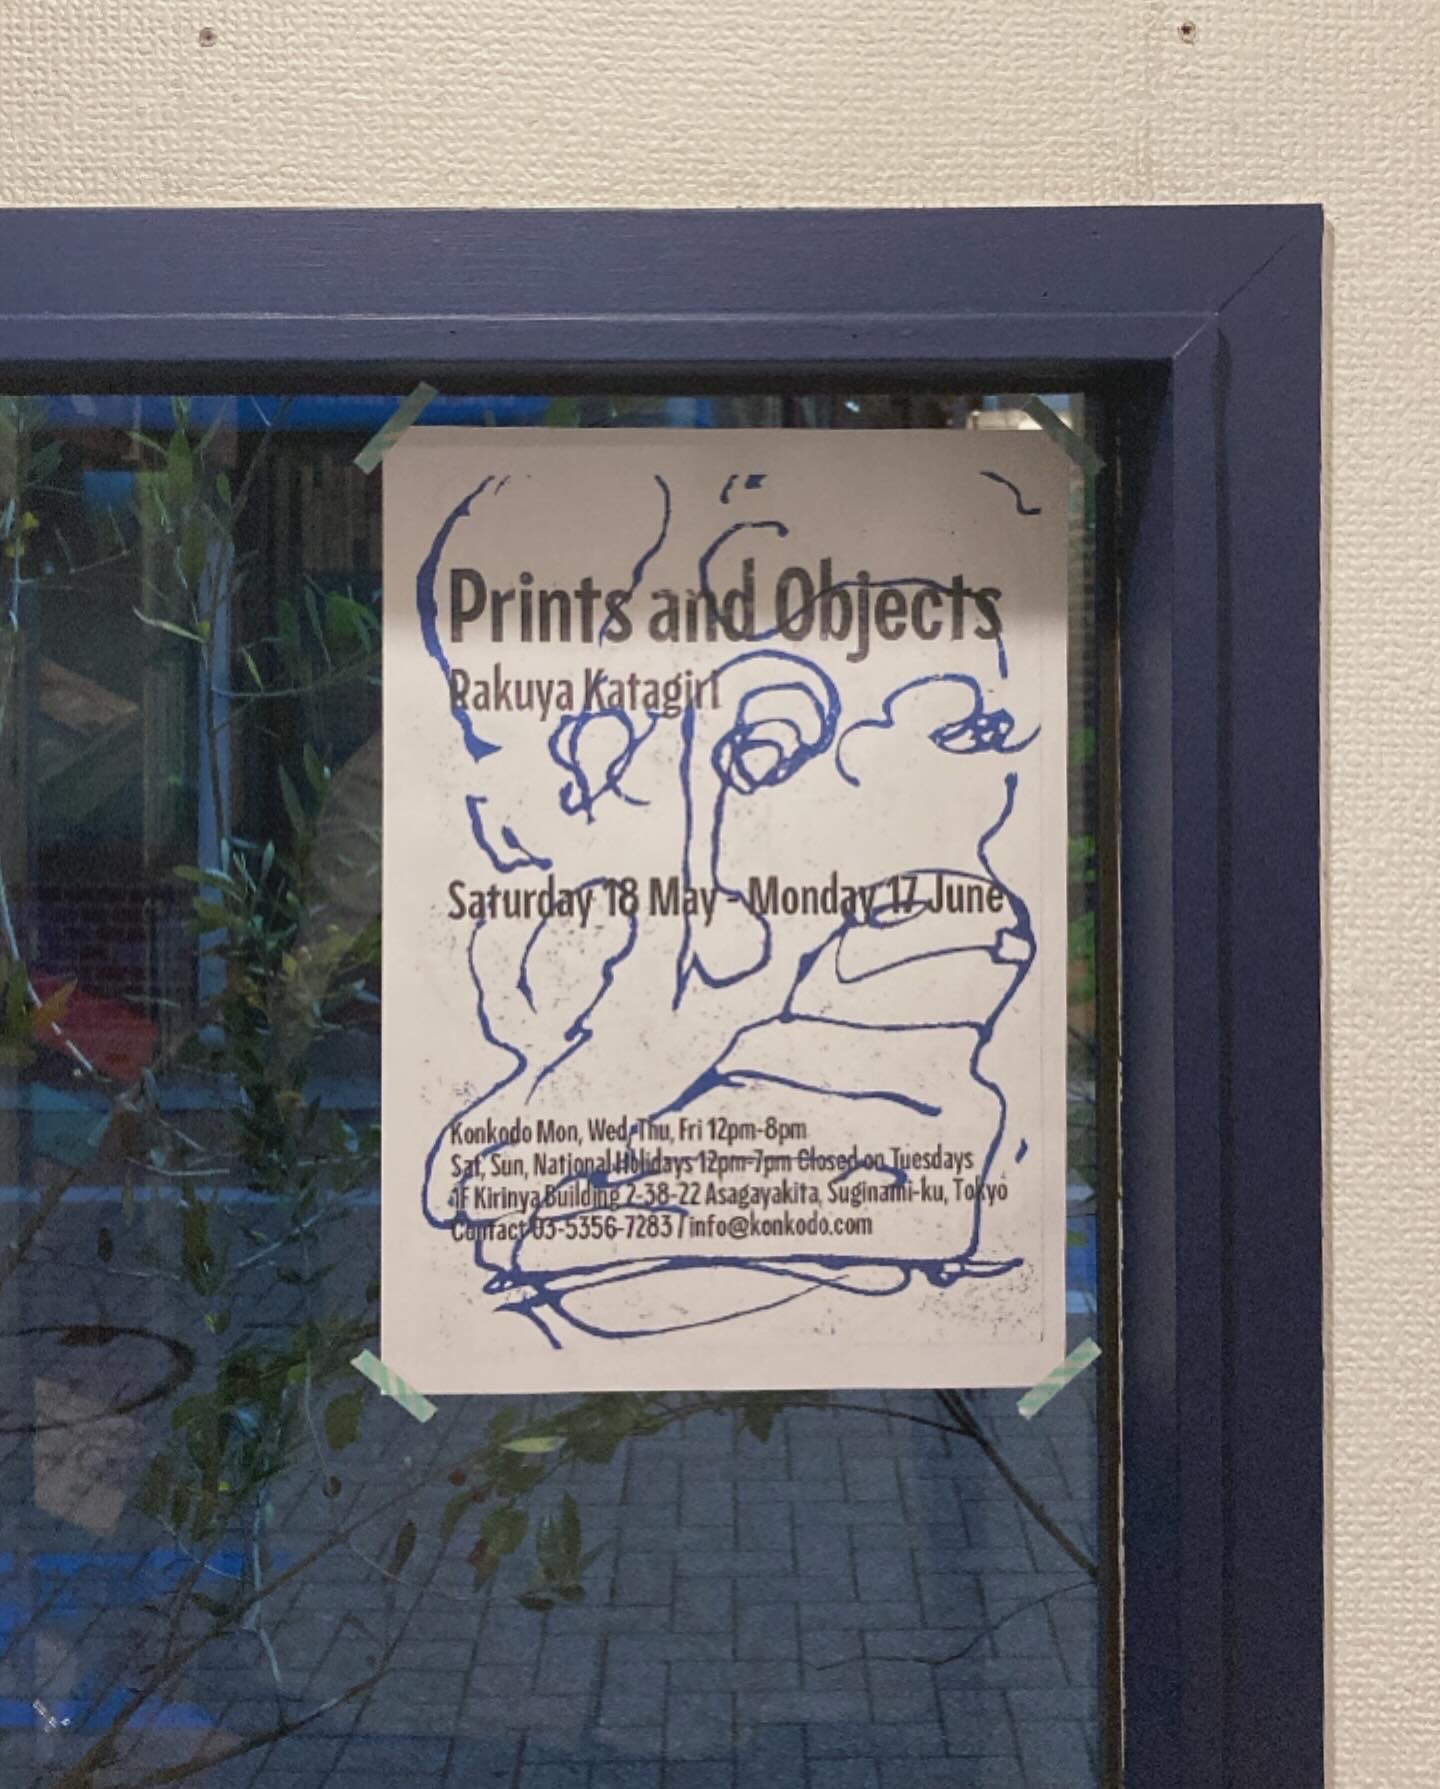 Prints and Objects
Rakuya Katagiri
Saturday 18 May - Monday 17 June
Konkodo Mon, Wed, Thu, Fri 12pm-8pm
Sat, Sun, National Holidays 12pm-7pm Closed on Tuesdays
1F Kirinya Building 2-38-22 Asagayakita, Suginami-ku, Tokyo
Contact 03-5356-7283 / info@konkodo.com